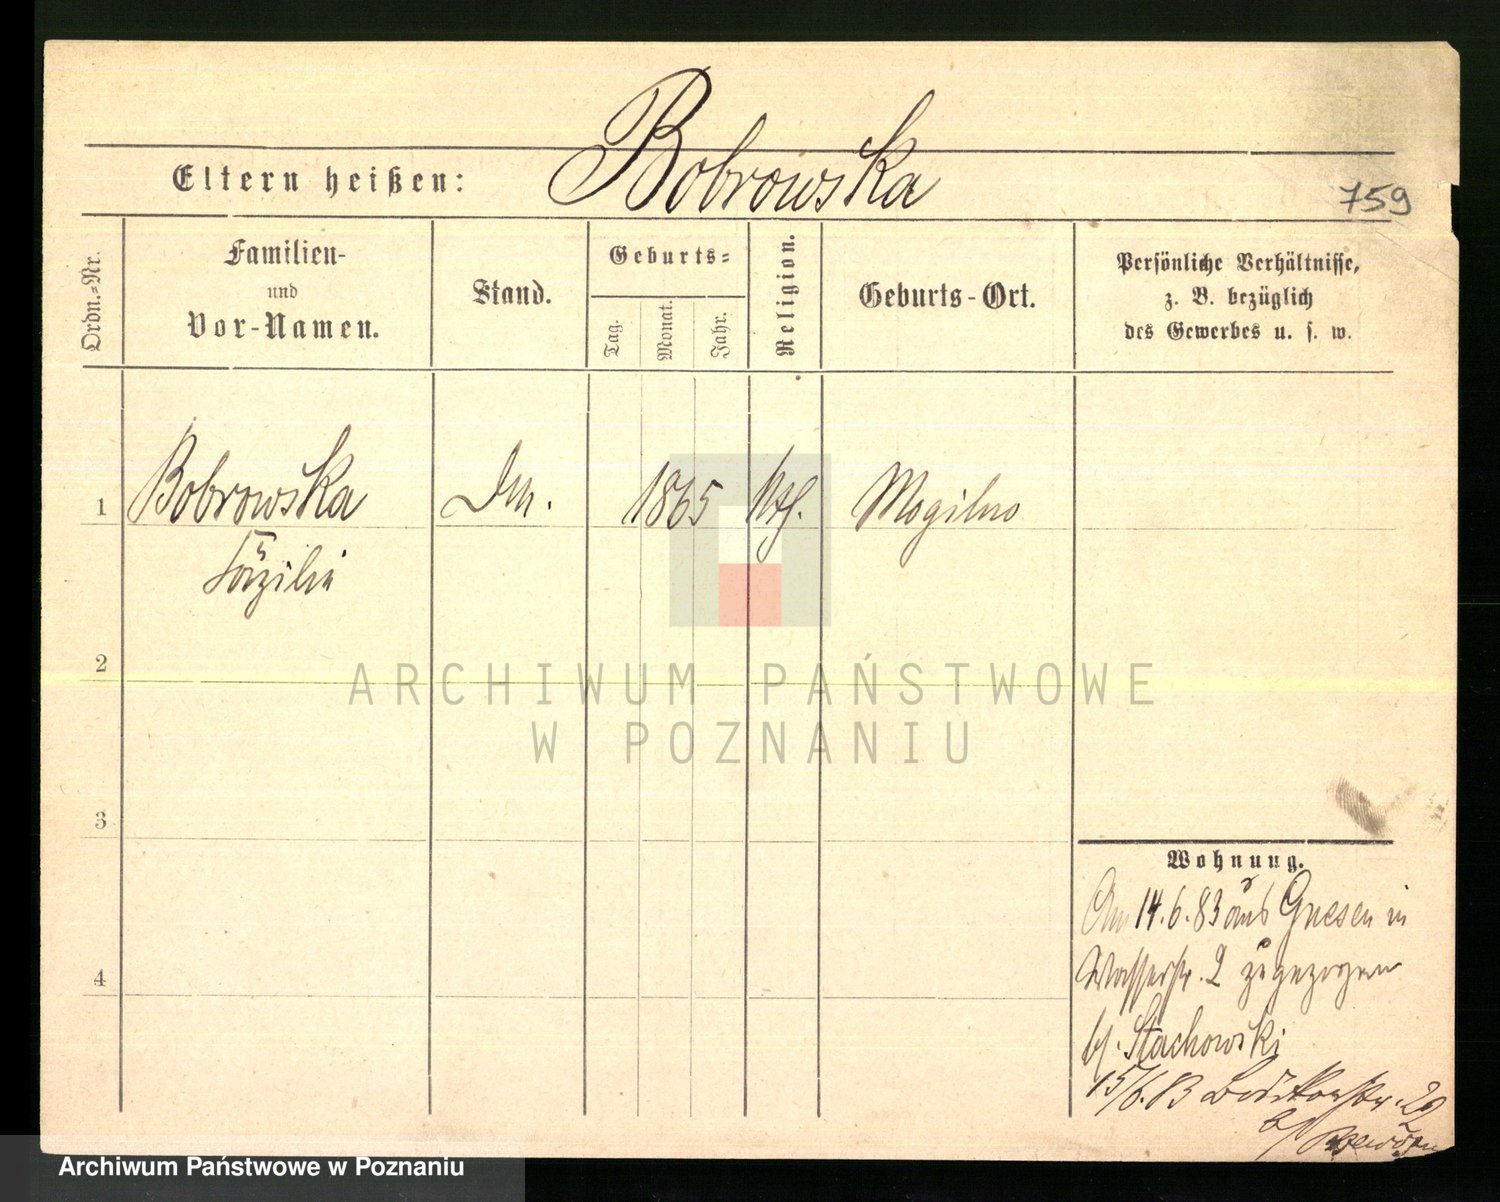 Bobrowska
Eltern heißen:
759
Ordn.-Nr.
Familien-
und
Vor-Namen.
Stand.
Geburts-
Tag.
Monat.
Jahr.
Religion.
Geburts-Ort.
Persönliche Verhältnisse,
z. B. bezüglich
des Gewerbes u. s. w.
1
Bobrowska
Cäzilie
1865
Kth.
Mogilno
2
ARCHIWUM PAŃSTWOWE
W POZNANIU
3
4
Wohnung.
Am 14.6.83 aus Gnesen in
Wasserstr. 2 zugezogen
bei Stachowski
15/6.83
Archiwum Państwowe w Poznaniu